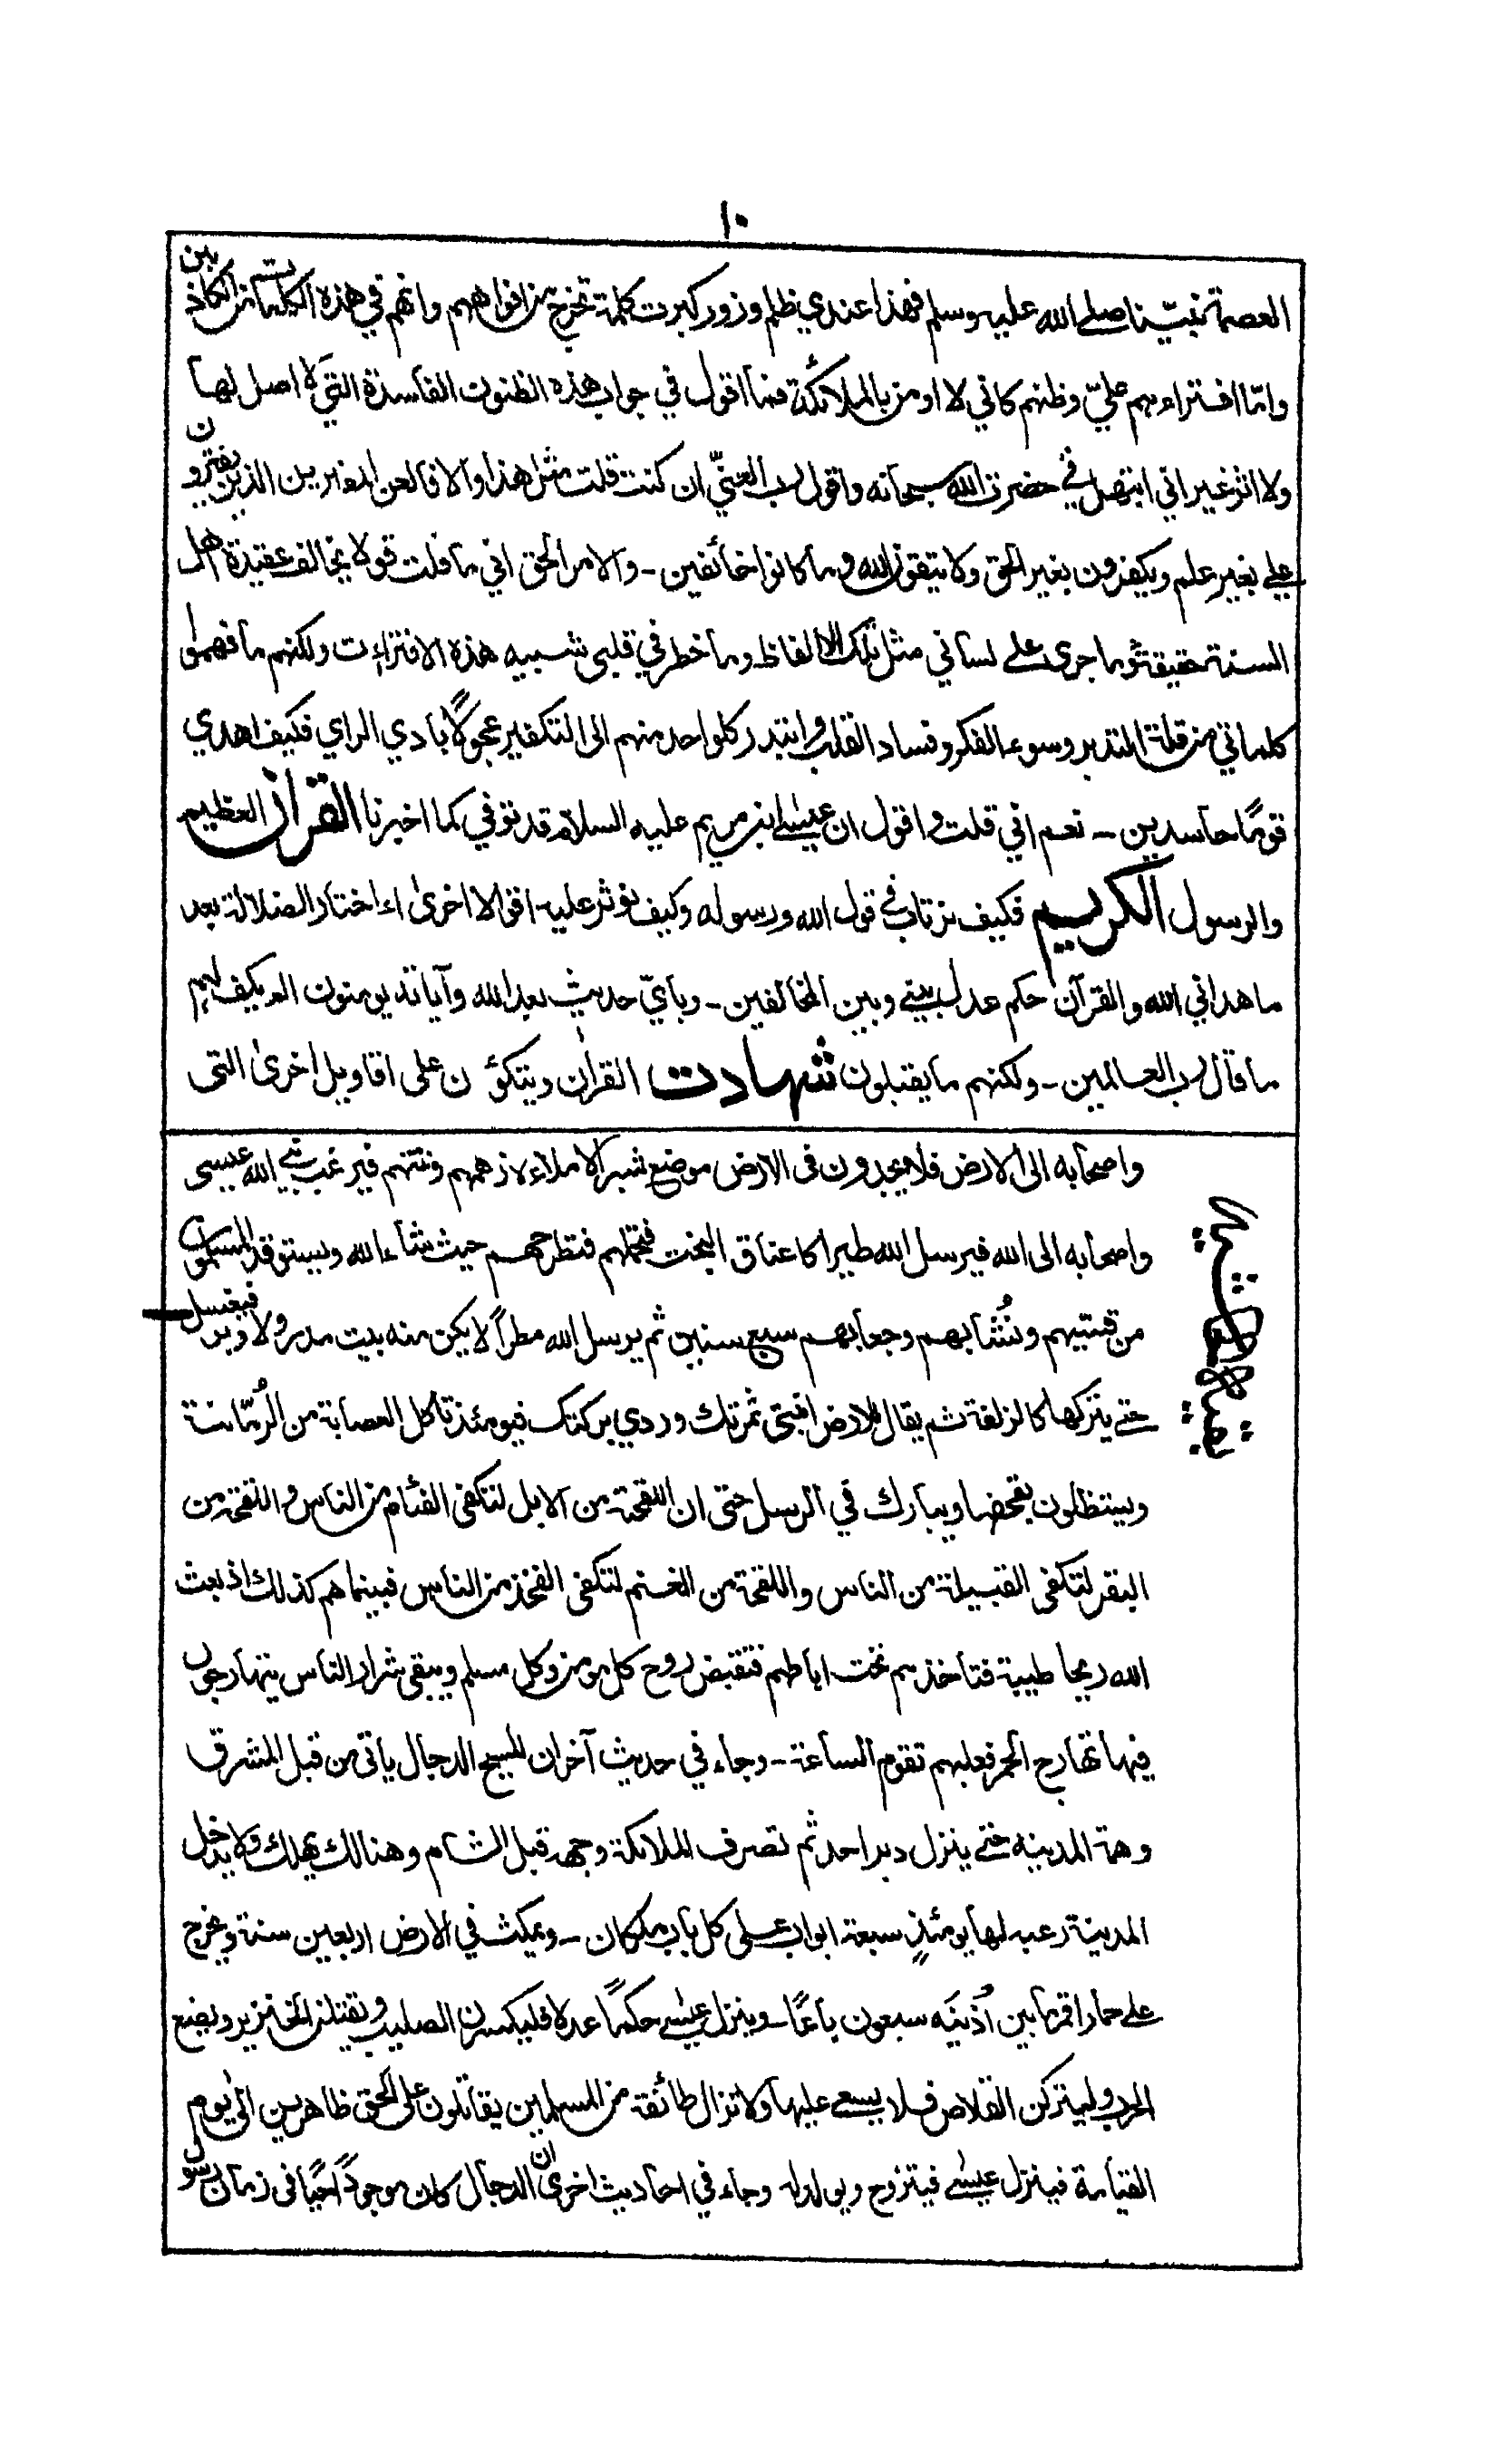 ١٠
العصمة بنبيّنا صلے الله عليه وسلم فهذا عندي ظلم وزور كبرت كلمة تخرج من افواههم وانهم في هذه الكلمات من الكاذبين
وامّا افتراءهم عليّ وظنهم كاني لا اومن بالملائكة فما اقول في جواب هذه الظنون الفاسدة التي لا اصل لها
ولا اثر غير اني ابتهل في حضرة الله سبحانه واقول رب العنّي ان كنت قلت مثل هذا والا فالعن المفترين الذين يفترون
علے بغير علم ويكفرون بغير الحق ولا يتقون الله وما كانوا خائفين ـ والامر الحق اني ما قلت قولا يخالف عقيدة اهل
السنة حقيقة وما جرى علے لساني مثل تلك الالفاظ وما خطر في قلبي شبيه هذه الافتراءت ولكنهم ما فهموا
كلماتي من قلة التدبر وسوء الفكر وفساد القلب وابتدر كلواحد منهم الى التكفير عجولًا بادي الراي فكيف اهدي
قومًا حاسدين ـ نعم اني قلت واقول ان عيسٰے ابن مريم عليه السلام قد توفي كما اخبرنا القرآن العظيم
والرسول الكريم فكيف نرتاب في قول الله ورسوله وكيف نوثر عليه اقوالا اخرىٰ ءاختار الضلالة بعد
ما هداني الله والقرآن حكم عدل بيني وبين المخالفين ـ وبأيّ حديث بعد الله وآياته يومنون الم يكف لهم
ما قال رب العالمين ـ ولكنهم ما يقبلون شهادت القراٰن ويتكؤن على اقاويل اخرىٰ التى
واصحابه الى الارض فلا يجدون فى الارض موضع شبر الا ملاءه زهمهم ونتنهم فيرغب نبي الله عيسى
واصحابه الى الله فيرسل الله طيرا كاعناق البخت فتحملهم فتطرحهم حيث شاء الله ويستوقد المسلمون
من قسيهم ونُشّابهم وجعابهم سبع سنين ثم يرسل الله مطراً لا يكن منه بيت مدر ولا وبر فيغسل
حتے يتركها كالزلفة ثم يقال للارض انبتى ثمرتك وردي بركتك فيومئذ تاكل العصابة من الرُمّانة
ويستظلون بقحفها ويبارك في الرسل حتى ان اللقحة من الابل لتكفى الفئام من الناس واللقحة من
البقر لتكفى القبيلة من الناس واللقحة من الغنم لتكفى الفخذ من الناس فبينما هم كذلك اذ بعث
الله ريحا طيبة فتاخذهم تحت اباطهم فتقبض روح كل مومن وكل مسلم ويبقى شرار الناس يتهارجون
فيها تهارج الحمر فعليهم تقوم الساعة ـ وجاء في حديث آخر ان المسيح الدجال ياتى من قبل المشرق
وهمة المدينه حتے ينزل دبر احد ثم تصرف الملائكة وجهه قبل الشام وهنالك يهلك ولا يدخل
المدينة رعبه لها يومئذٍ سبعة ابواب على كل باب ملكان ـ ويمكث في الارض اربعين سنة ويخرج
علے حمار اقمر ما بين اُذنيه سبعون باعًا ـ وينزل عيسٰے حكمًا عدلا فليكسرن الصليب ويقتلن الخنزير ويضع
الحرب وليتركن القلاص فلا يسعے عليها ولا تزال طائفة من المسلمين يقاتلون على الحق ظاهرين الٰى يوم
القيامة فينزل عيسٰے فيتزوج ويولد له وجاء في احاديث اخرىٰ ان الدجال كان موجوداً حيًا فى زمان رسول